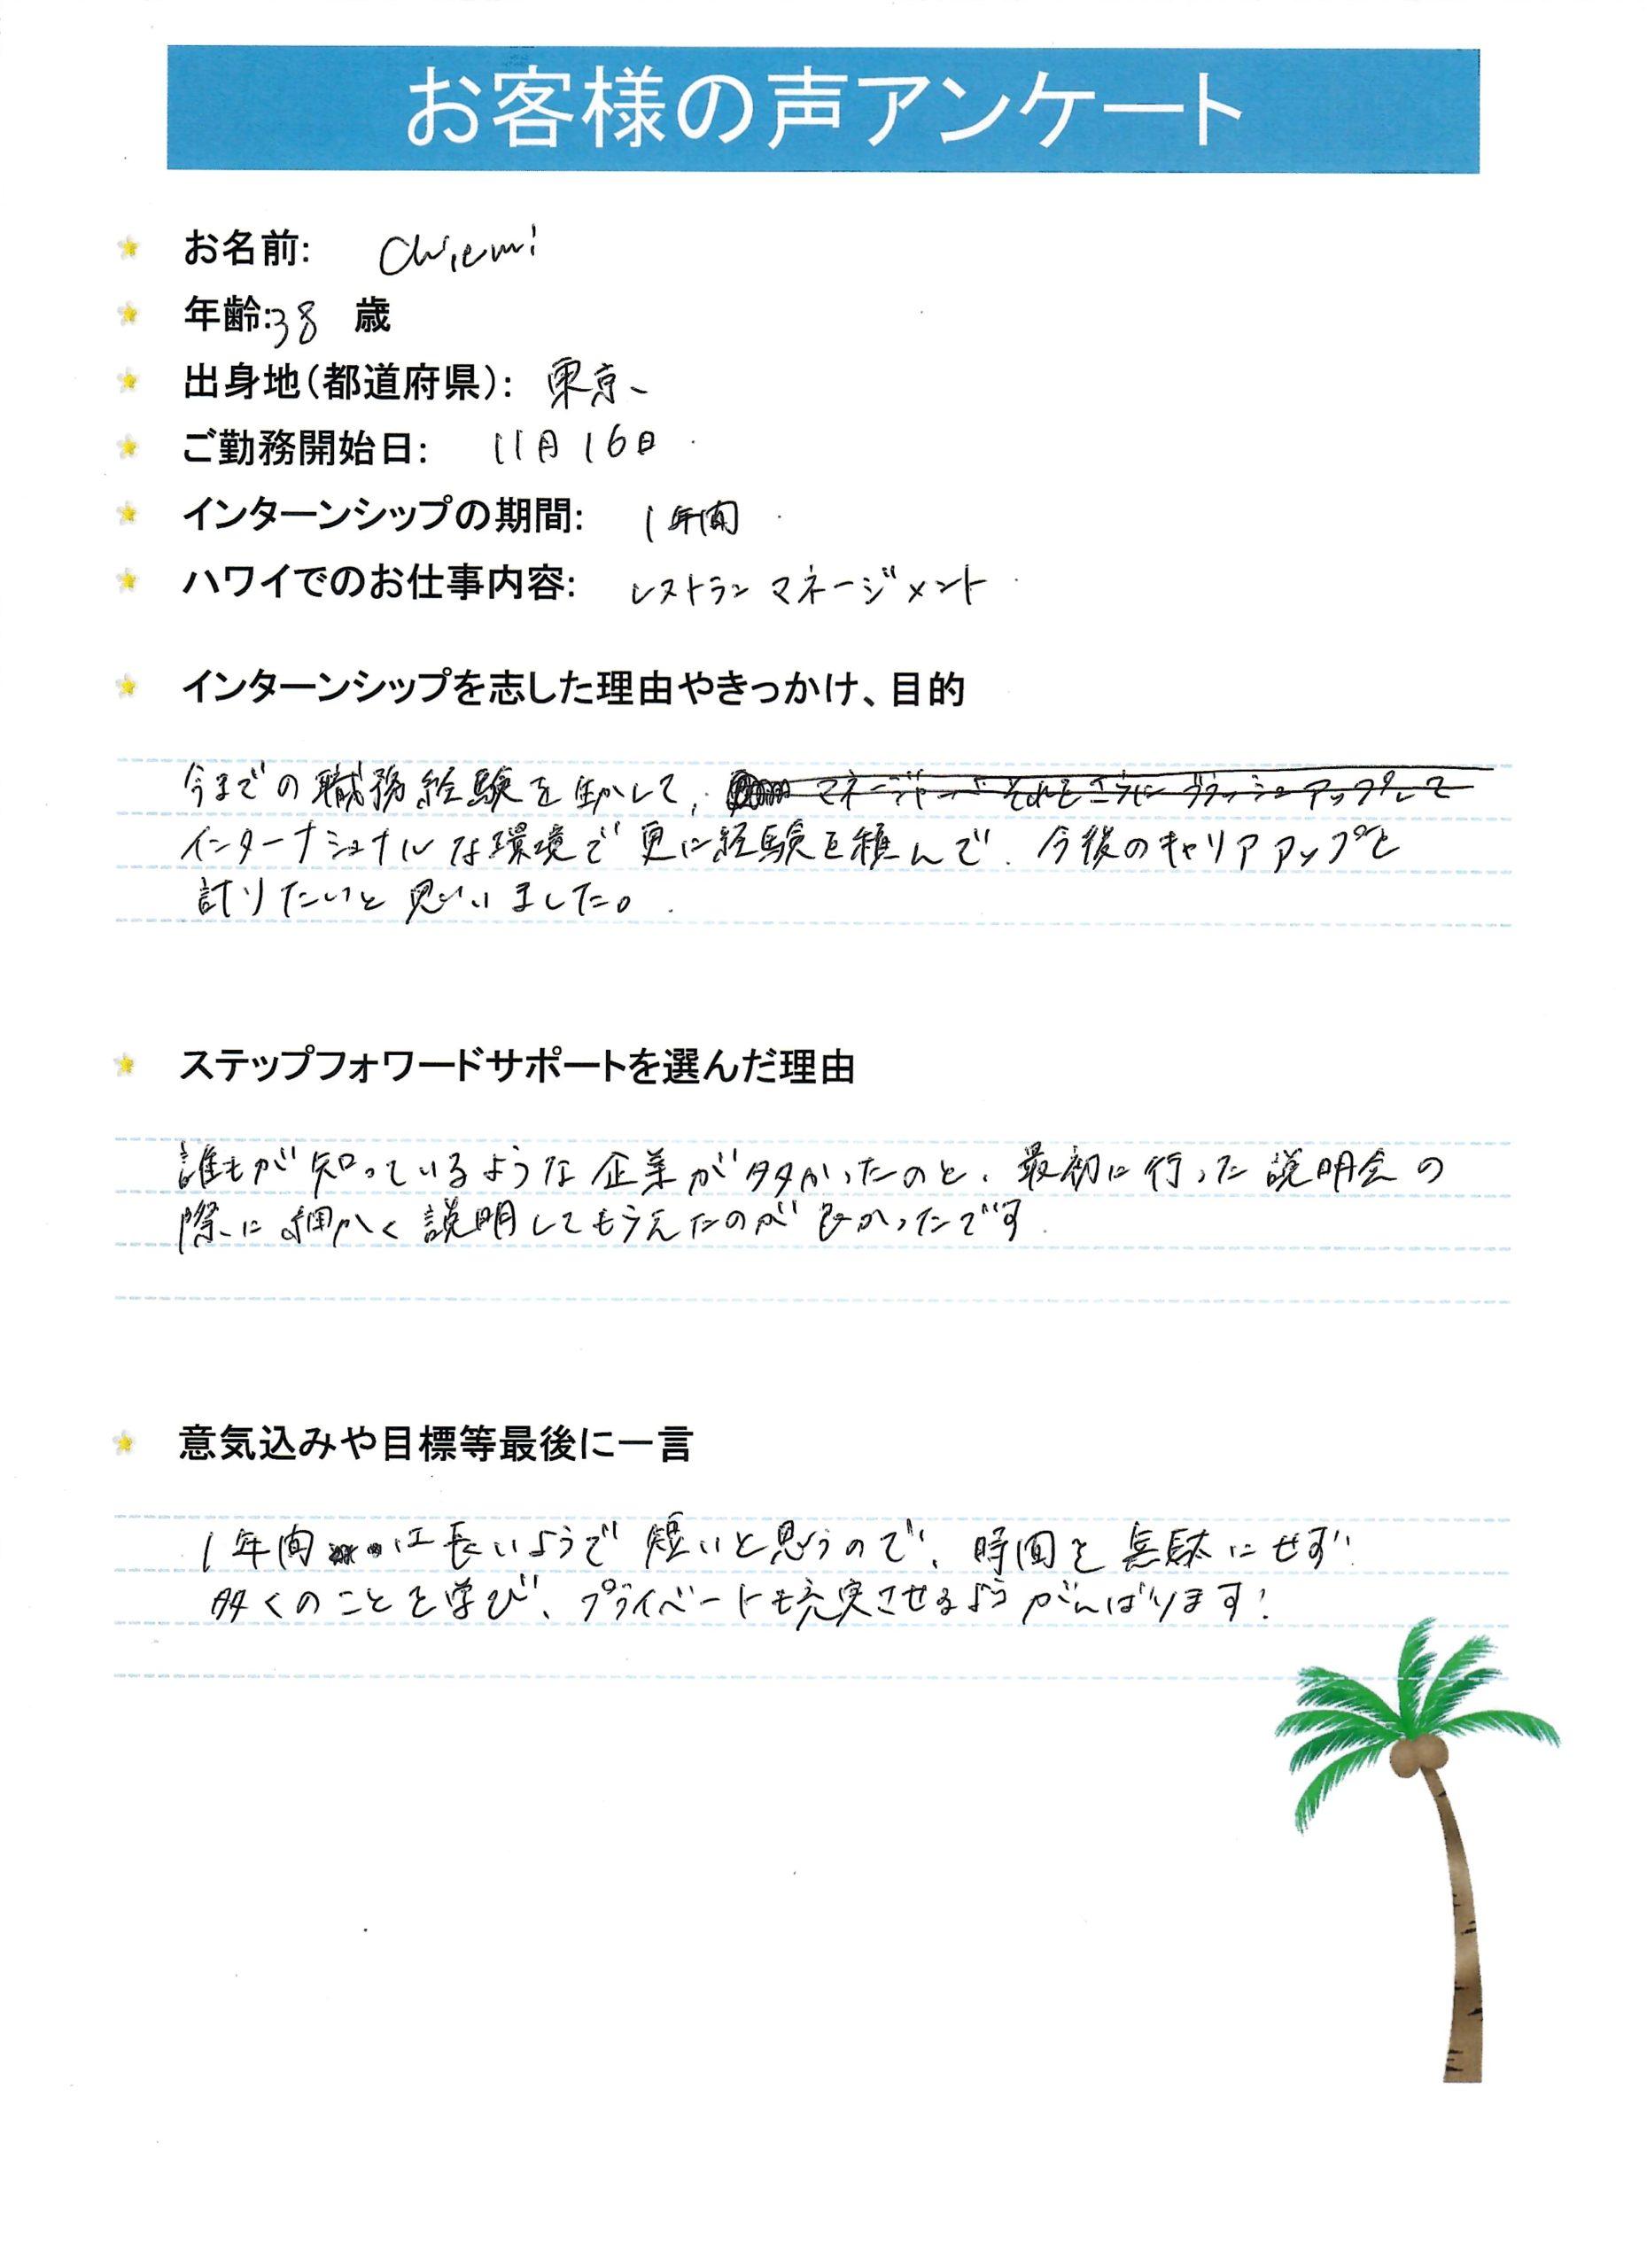 お客様の声アンケート
お名前: Chiemi
年齢:38 歳
出身地(都道府県): 東京
ご勤務開始日: 11月16日
インターンシップの期間: 1年間
ハワイでのお仕事内容: レストランマネージメント
インターンシップを志した理由やきっかけ、目的
今までの職務経験を生かして、
インターナショナルな環境で更に経験を積んで、今後のキャリアアップを
計りたいと思いました。
ステップフォワードサポートを選んだ理由
誰もが知っているような企業が多かったのと、最初に行った説明会の
際に細かく説明してもらえたのが良かったです
意気込みや目標等最後に一言
1年間は長いようで短いと思うので、時間を無駄にせず
多くのことを学び、プライベートも充実させるようがんばります!